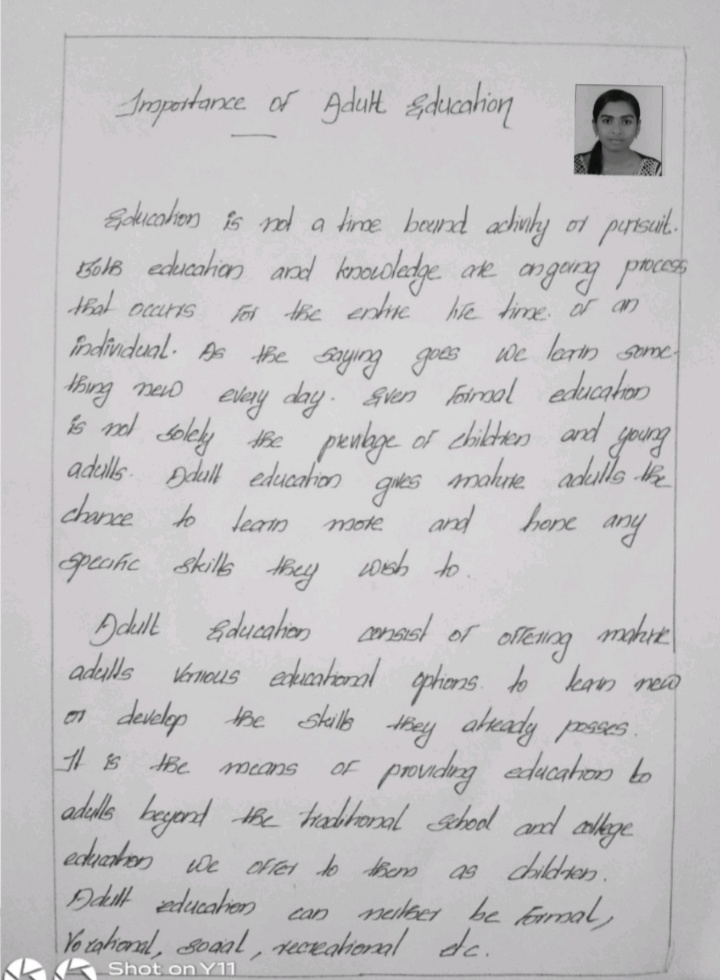 Importance of Adult Education
Education is not a time bound activity or pursuit.
Both education and knowledge are ongoing process
that occurs for the entire life time. of an
individual. As the saying goes we learn some-
thing new every day. Even formal education
is not solely the previlage of children and young
adults. Adult education gives mature adults the
chance to learn more and hone any
specific skills they wish to.
Adult Education consist of offering mature
adults various educational options to learn new
or develop the skills they already posses.
It is the means of providing education to
adults beyond the traditional school and college
education we offer to them as children.
Adult education can neither be formal,
Vocational, social, recreational etc.
Shot on Y11